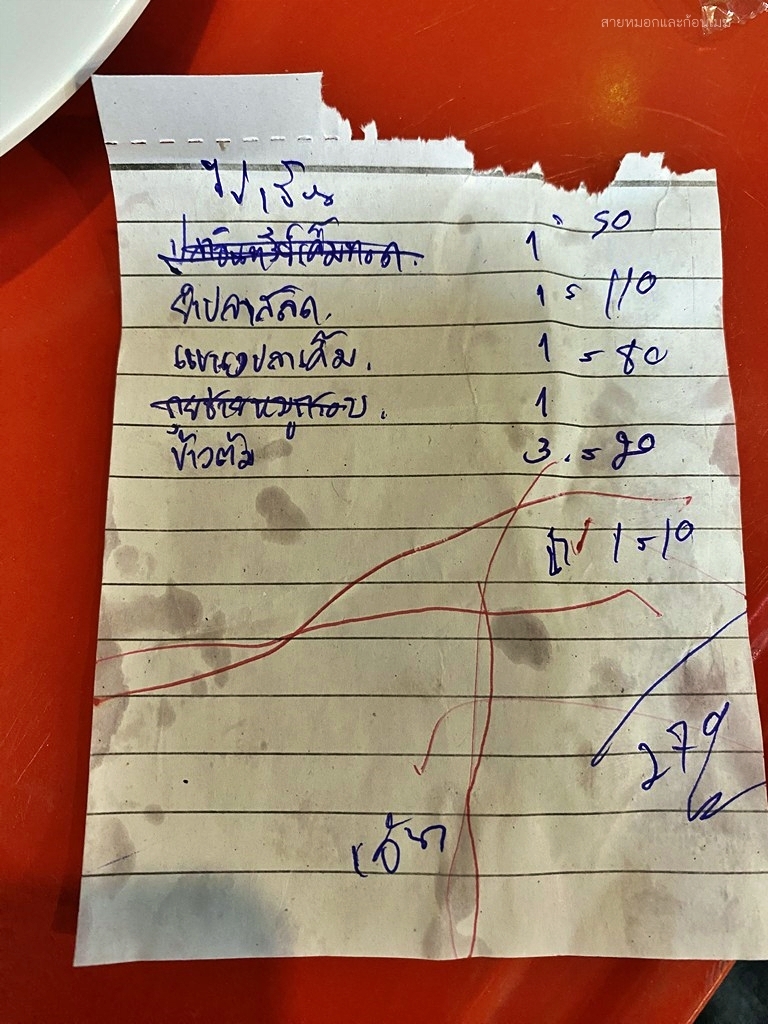 สายหมอกและก้อนเมฆ
50
ปลาอินทรีย์เค็มทอด. 1
ยำปลาสลิด. 1 = 110
แขนงปลาเค็ม. 1 = 80
กุยช่ายหมูกรอบ. 1
ข้าวต้ม 3. = 20
1 = 10
279